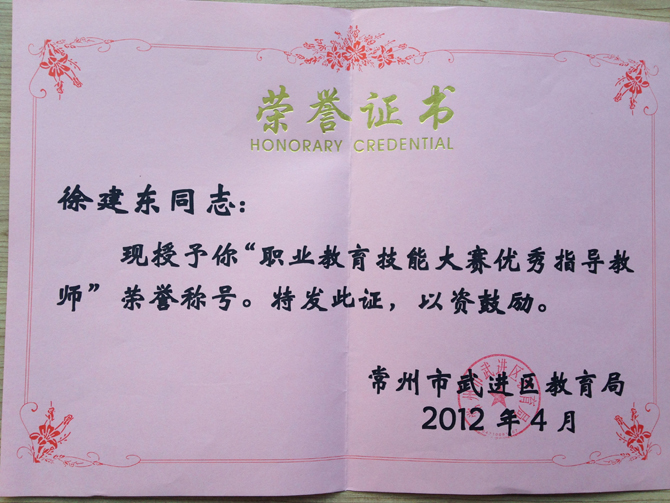 荣誉证书
HONORARY CREDENTIAL
徐建东同志：
现授予你“职业教育技能大赛优秀指导教
师”荣誉称号。特发此证，以资鼓励。
常州市武进区教育局
2012年4月